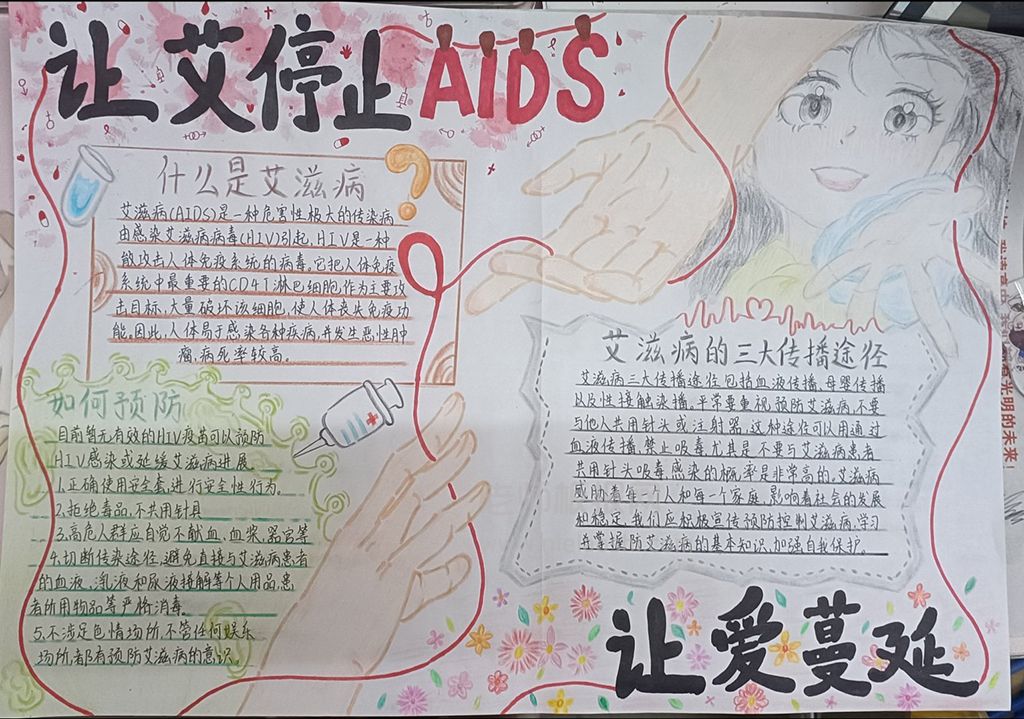 让艾停止AIDS
什么是艾滋病
艾滋病(AIDS)是一种危害性极大的传染病
由感染艾滋病病毒(HIV)引起,HIV是一种
能攻击人体免疫系统的病毒。它把人体免疫
系统中最重要的CD4T淋巴细胞,作为主要攻
击目标,大量破坏该细胞,使人体丧失免疫功
能。因此,人体易于感染各种疾病,并发生恶性肿
瘤,病死率较高。
如何预防
目前暂无有效的HIV疫苗可以预防
HIV感染或延缓艾滋病进展。
1.正确使用安全套,进行安全性行为。
2.拒绝毒品,不共用针具
3.高危人群应自觉不献血、血浆、器官等
4.切断传染途径,避免直接与艾滋病患者
的血液、乳液和尿液接触等个人用品,患
者所用物品等严格消毒。
5.不涉足色情场所,不管任何娱乐
场所,都有预防艾滋病的意识。
艾滋病的三大传播途径
艾滋病三大传播途径包括血液传播、母婴传播
以及性接触染播。平常要重视预防艾滋病,不要
与他人共用针头或注射器,这种途径可以用通过
血液传播,禁止吸毒尤其是不要与艾滋病患者
共用针头吸毒感染的概率是非常高的。艾滋病
威胁着每一个人和每一个家庭,影响着社会的发展
和稳定,我们应积极宣传预防控制艾滋病,学习
并掌握防艾滋病的基本知识,加强自我保护。
让爱蔓延
光明的未来!